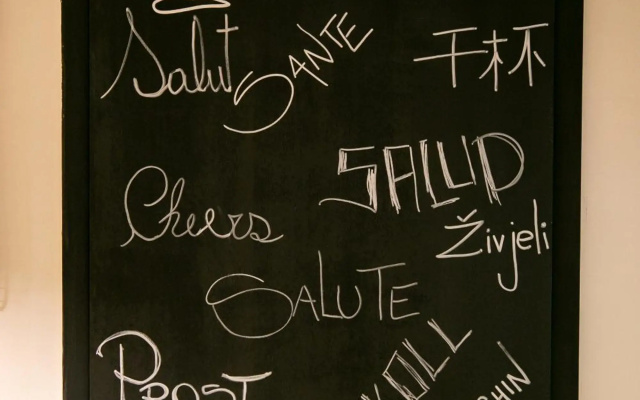 Salut
SANTE
干杯
SALUD
Cheers
Živjeli
SALUTE
PROST